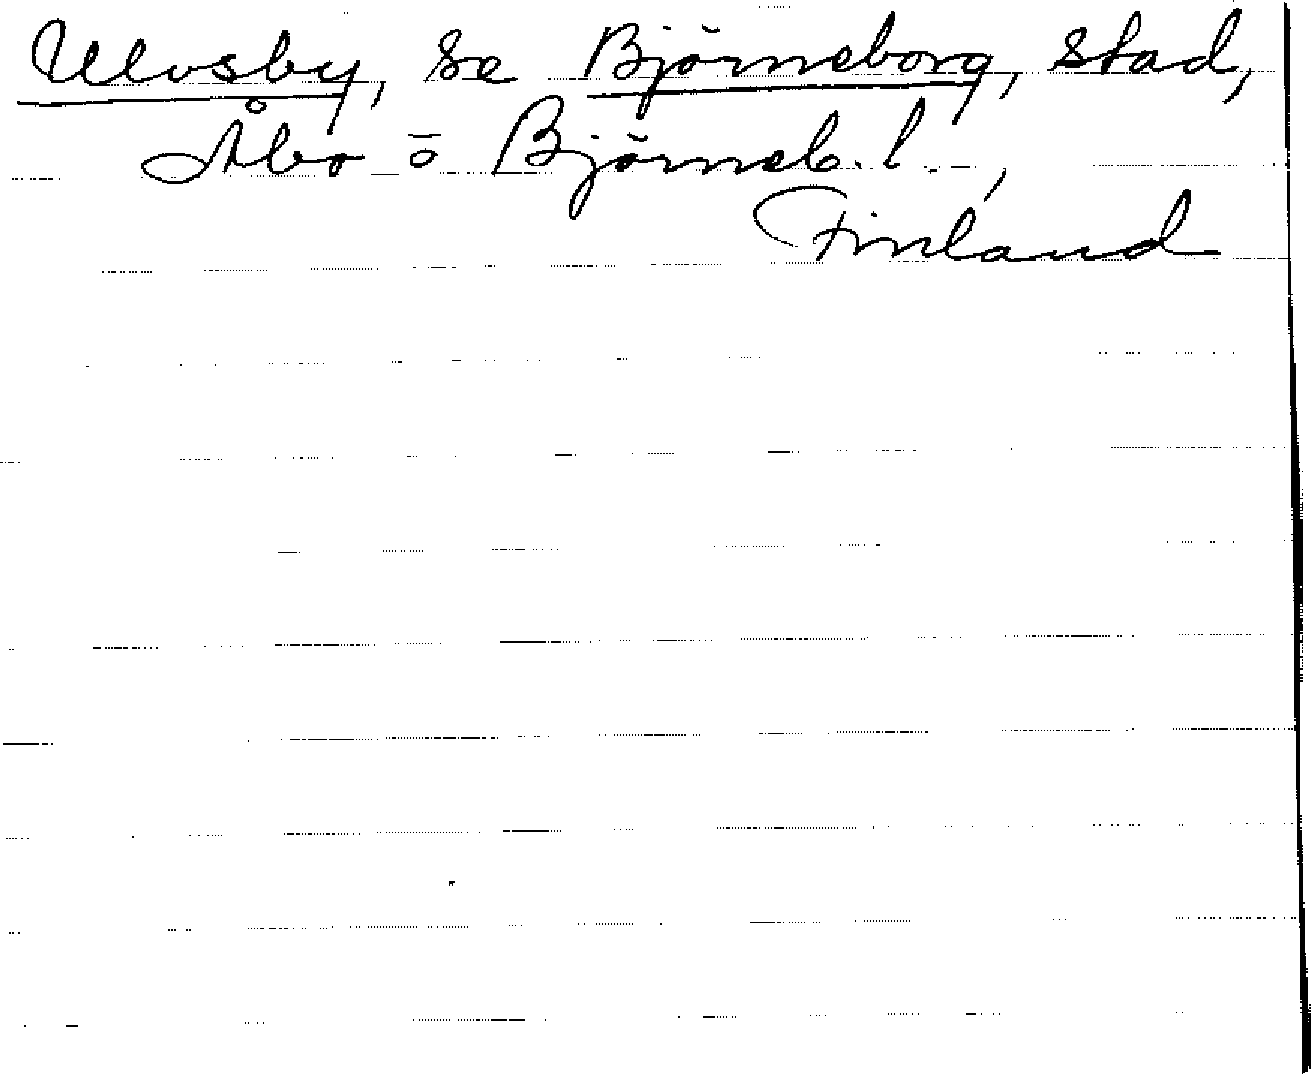 Ulvsby, se Björneborg, stad,
Åbo o Björneb. l.,
Finland